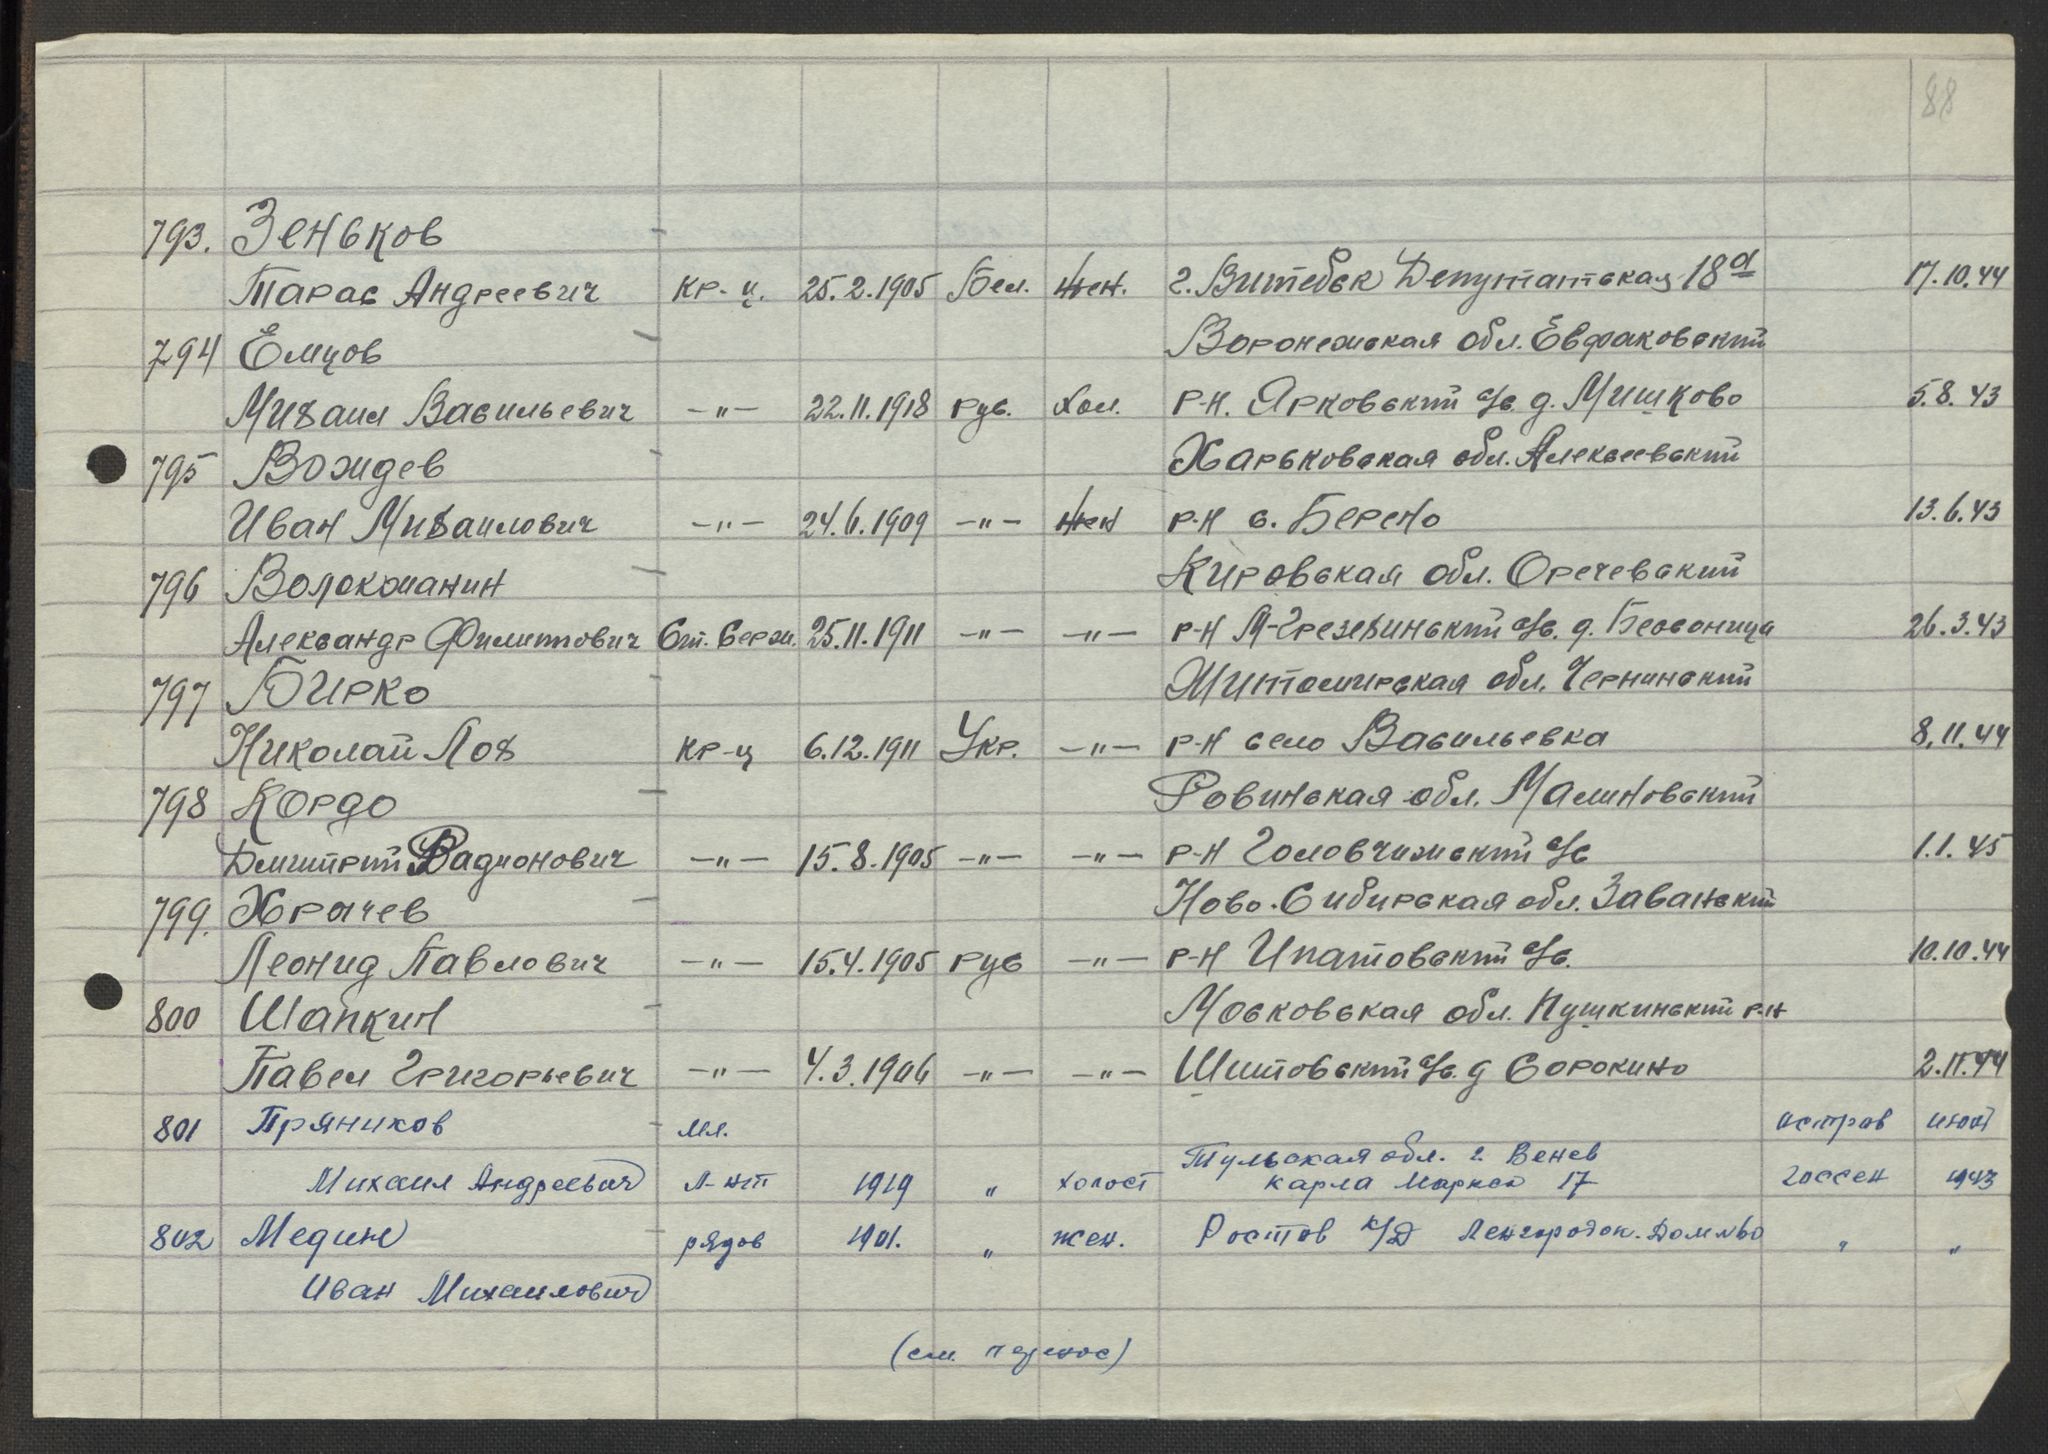 88
793. Зеньков
Тарас Андреевич кр-ц. 25.2.1905 Бел. жен. г. Витебск Депутатская 18а 17.10.44
794 Емцов Воронежская обл. Евдаковский
Михаил Васильевич —"— 22.11.1918 рус. Хол. р-н. Ярковский с/с. д. Мишково 5.8.43
795 Вождев Харьковская обл. Алексеевский
Иван Михаилович —"— 24.6.1909 —"— жен р-н с. Берено 13.6.43
796 Волокжанин Кировская обл. Оречевский
Александр Филиппович Ст. Серж. 25.11.1911 —"— —"— р-н М-Грезехинский с/с. д. 26.3.43
797 Бирко Житомирская обл. Чернинский
Николай Лох кр-ц 6.12.1911 Укр. —"— р-н село Васильевка 8.11.44
798 Кордо Ровинская обл. Малиновский
Дмитрий Радионович —"— 15.8.1905 —"— —"— р-н Головчижский с/с 1.1.45
799. Храчев Ново-Сибирская обл. Заванский
Леонид Павлович —"— 15.4.1905 рус —"— р-н Ипатовский с/с. 10.10.44
800 Шапкин Московская обл. Пушкинский р-н
Павел Григорьевич —"— 4.3.1906 —"— —"— Шитовский с/с. д Сорокино 2.11.44
801 Пряников мл. остров июнь
Тульская обл. г. Венев
Михаил Андреевич л-нт 1919 " холост Карла Маркса 17 Госсен 1943
802 Медин рядов 1901. " жен. Ростов н/Д Ленгородок. Дом №60 " "
Иван Михаилович
(см. перенос)